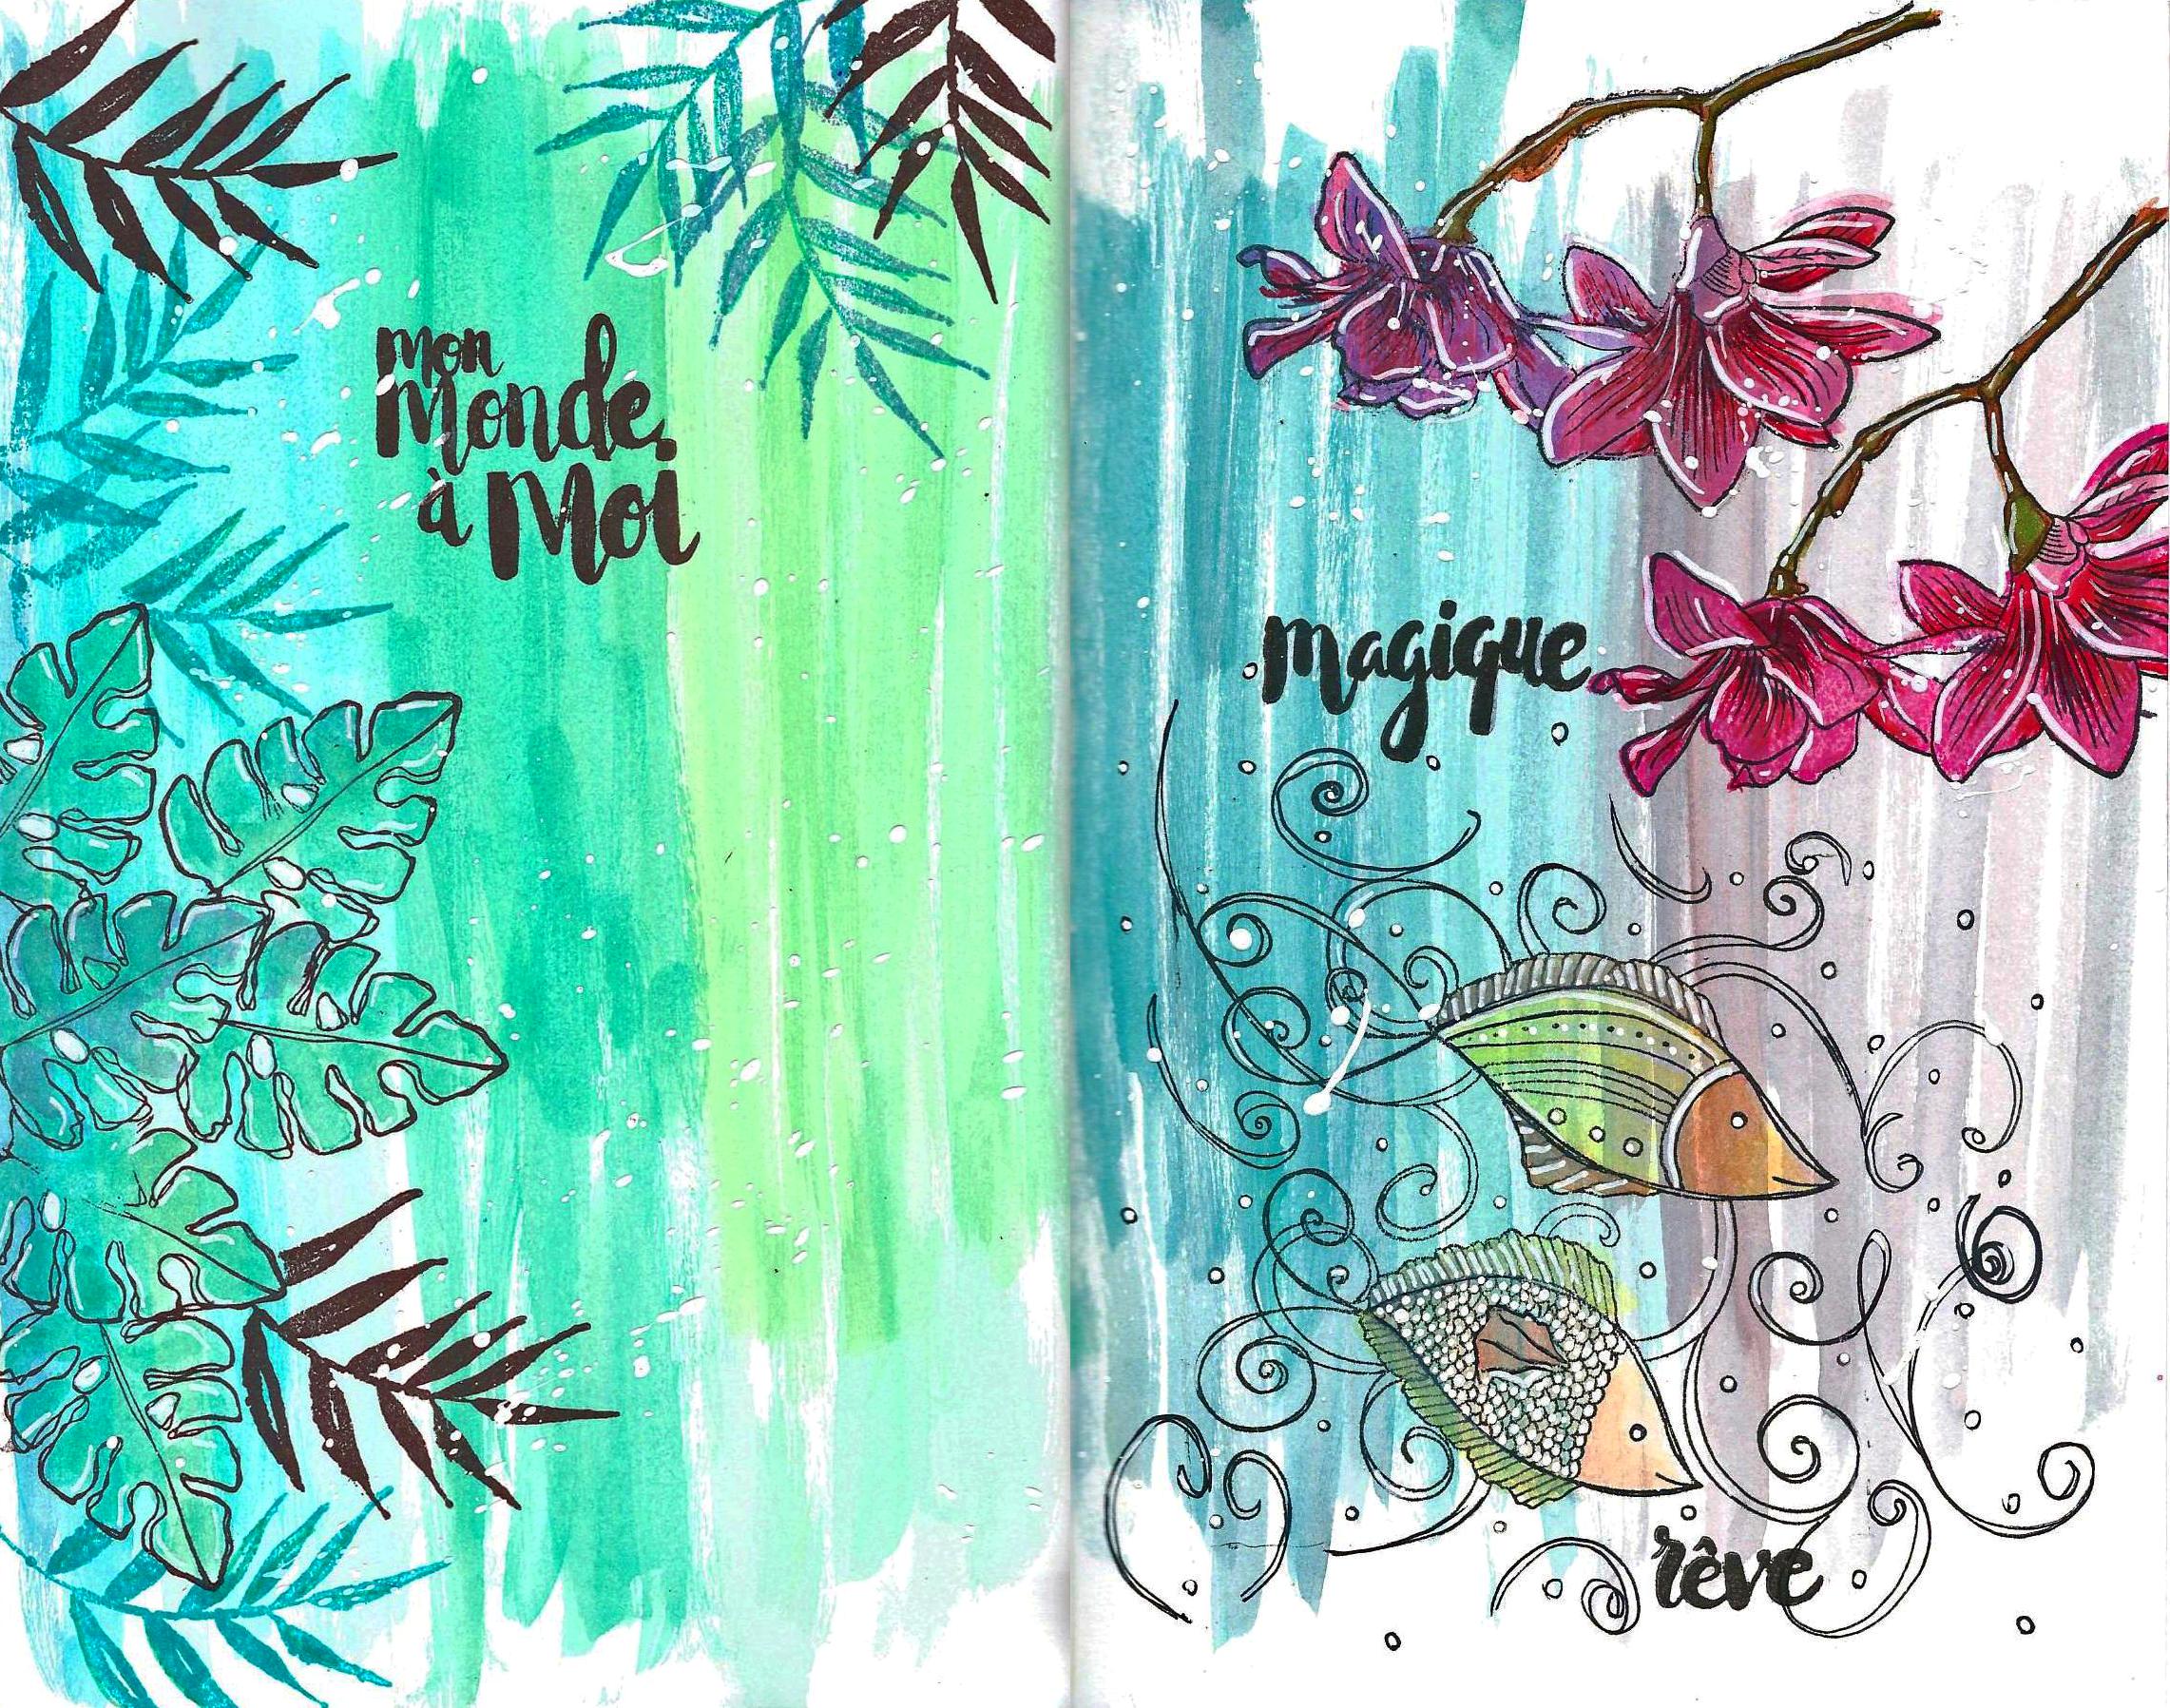 mon
Monde
à Moi
magique
rêve